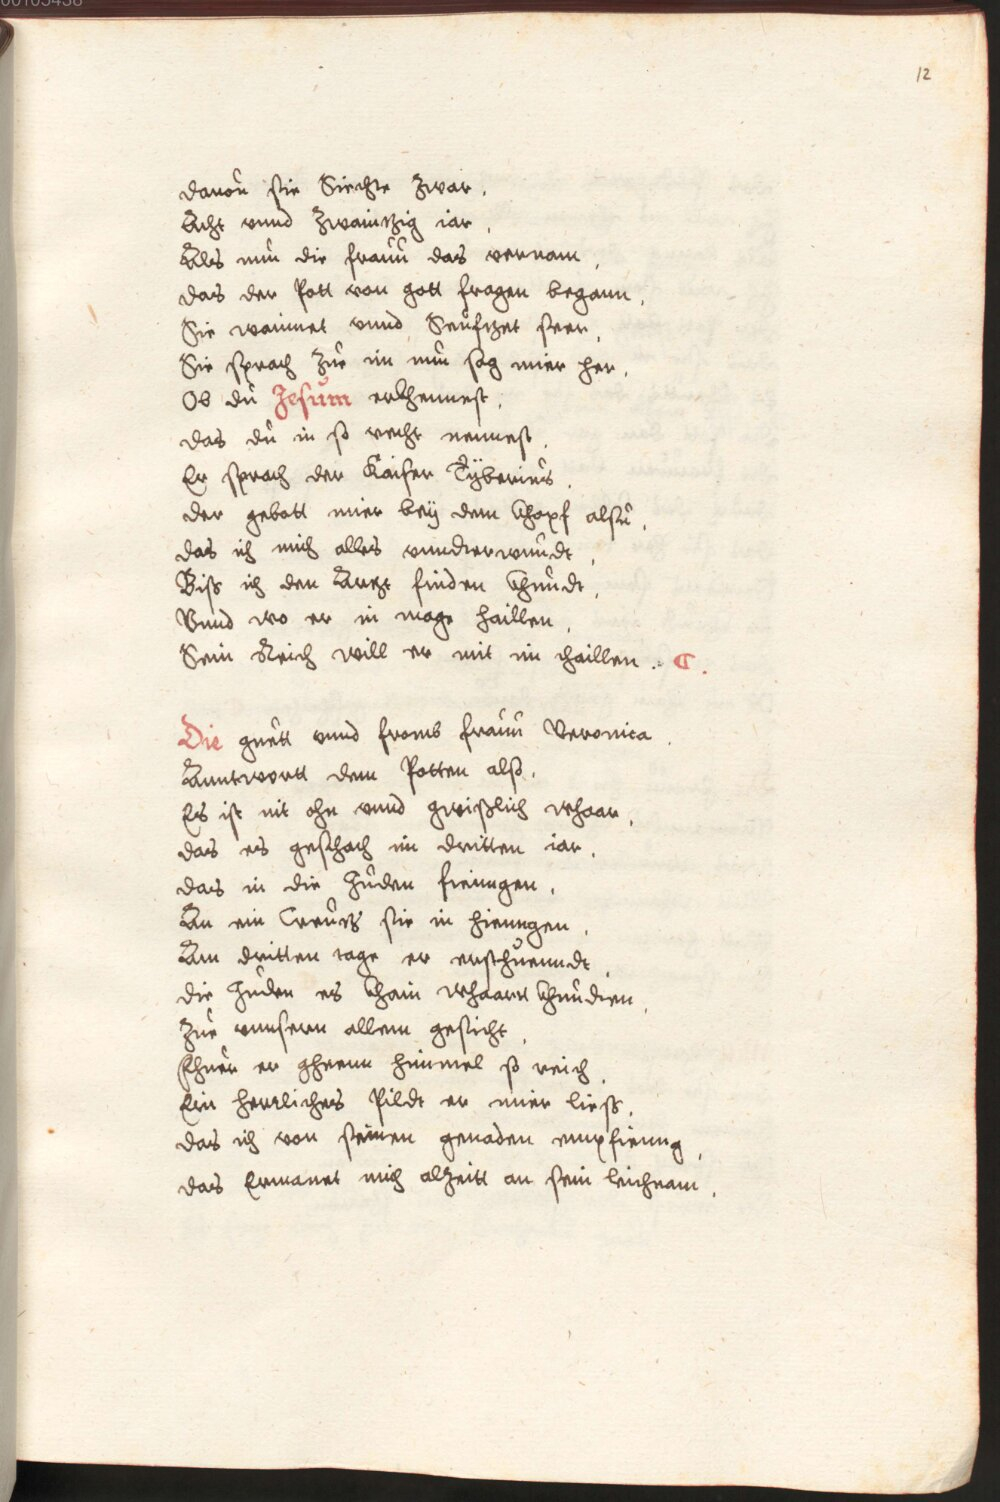 00105438
12
dauon sie Siechte Zwar.
Acht vnnd Zwaintzig iar,
Als nun die frauu das vernam,
das der Pott von gott fragen begann,
Sie wainnet vnnd Seufftzet seer,
Sie sprach Zue im nun sag mier her,
Ob du Jesum erkhennest,
das du in so recht nennest,
Er sprach der Kaiser Tÿberius,
der gebott mier beÿ dem khopf alsu,
das ich mich alles vnnderwundt,
Biß ich den Artzt finden khundt,
Vnnd wo er in moge haillen,
Sein Reich will er mit im thaillen.
Die guett vnnd fromb frauu Veronica,
Anntwortt dem Potten alß,
Es ist nit ohn vnnd gwißlich whaar,
das es geschach im dritten iar,
das in die Juden fienngen,
An ein Creutz sie in hienngen,
Am dritten tage er erstuenndt,
die Juden es khain whaart khundten,
Zue vnnsern allem gesicht,
Fhuer er ghenn himmel so reich,
Ein herrliches Pildt er mier ließ,
das ich von seinen genaden empfienng,
das Ermanet mich alZeitt an sein leichnam,